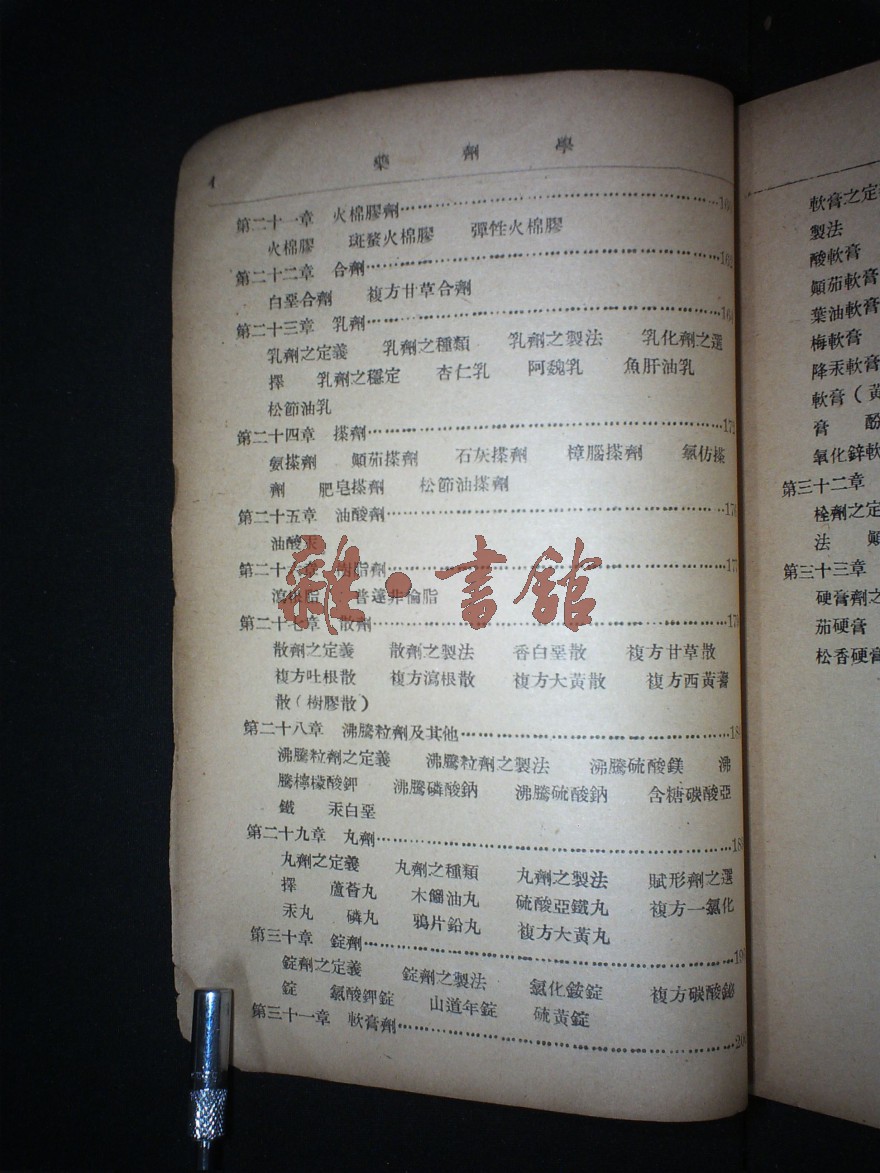 4
藥劑學
第二十一章 火棉膠劑
火棉膠 斑蝥火棉膠 彈性火棉膠
第二十二章 合劑
白堊合劑 複方甘草合劑
第二十三章 乳劑
乳劑之定義 乳劑之種類 乳劑之製法 乳化劑之選
擇 乳劑之穩定 杏仁乳 阿魏乳 魚肝油乳
松節油乳
第二十四章 搽劑
氨搽劑 顚茄搽劑 石灰搽劑 樟腦搽劑 氯仿搽
劑 肥皂搽劑 松節油搽劑
第二十五章 油酸劑
油酸汞
第二十六章 樹脂劑
瀉根脂 普達非倫脂
第二十七章 散劑
散劑之定義 散劑之製法 香白堊散 複方甘草散
複方吐根散 複方瀉根散 複方大黃散 複方西黃蓍
散（樹膠散）
第二十八章 沸騰粒劑及其他
沸騰粒劑之定義 沸騰粒劑之製法 沸騰硫酸鎂 沸
騰檸檬酸鉀 沸騰磷酸鈉 沸騰硫酸鈉 含糖碳酸亞
鐵 汞白堊
第二十九章 丸劑
丸劑之定義 丸劑之種類 丸劑之製法 賦形劑之選
擇 蘆薈丸 木餾油丸 硫酸亞鐵丸 複方一氯化
汞丸 磷丸 鴉片鉛丸 複方大黃丸
第三十章 錠劑
錠劑之定義 錠劑之製法 氯化銨錠 複方碳酸鉍
錠 氯酸鉀錠 山道年錠 硫黃錠
第三十一章 軟膏劑
雜·書館
軟膏之定義
製法
酸軟膏
顚茄軟膏
葉油軟膏
梅軟膏
降汞軟膏
軟膏（黃
膏 酚
氧化鋅軟
第三十二章
栓劑之定
法 顚
第三十三章
硬膏劑之
茄硬膏
松香硬膏